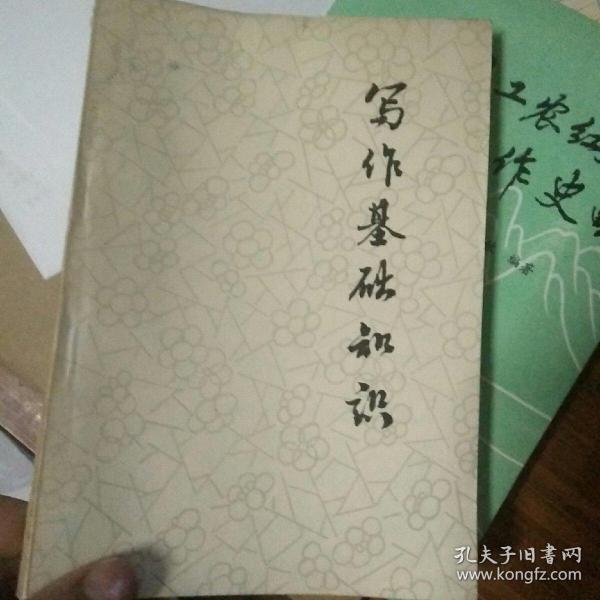 写作基础知识
工农红
作史
编著
孔夫子旧书网
www.kongfz.com